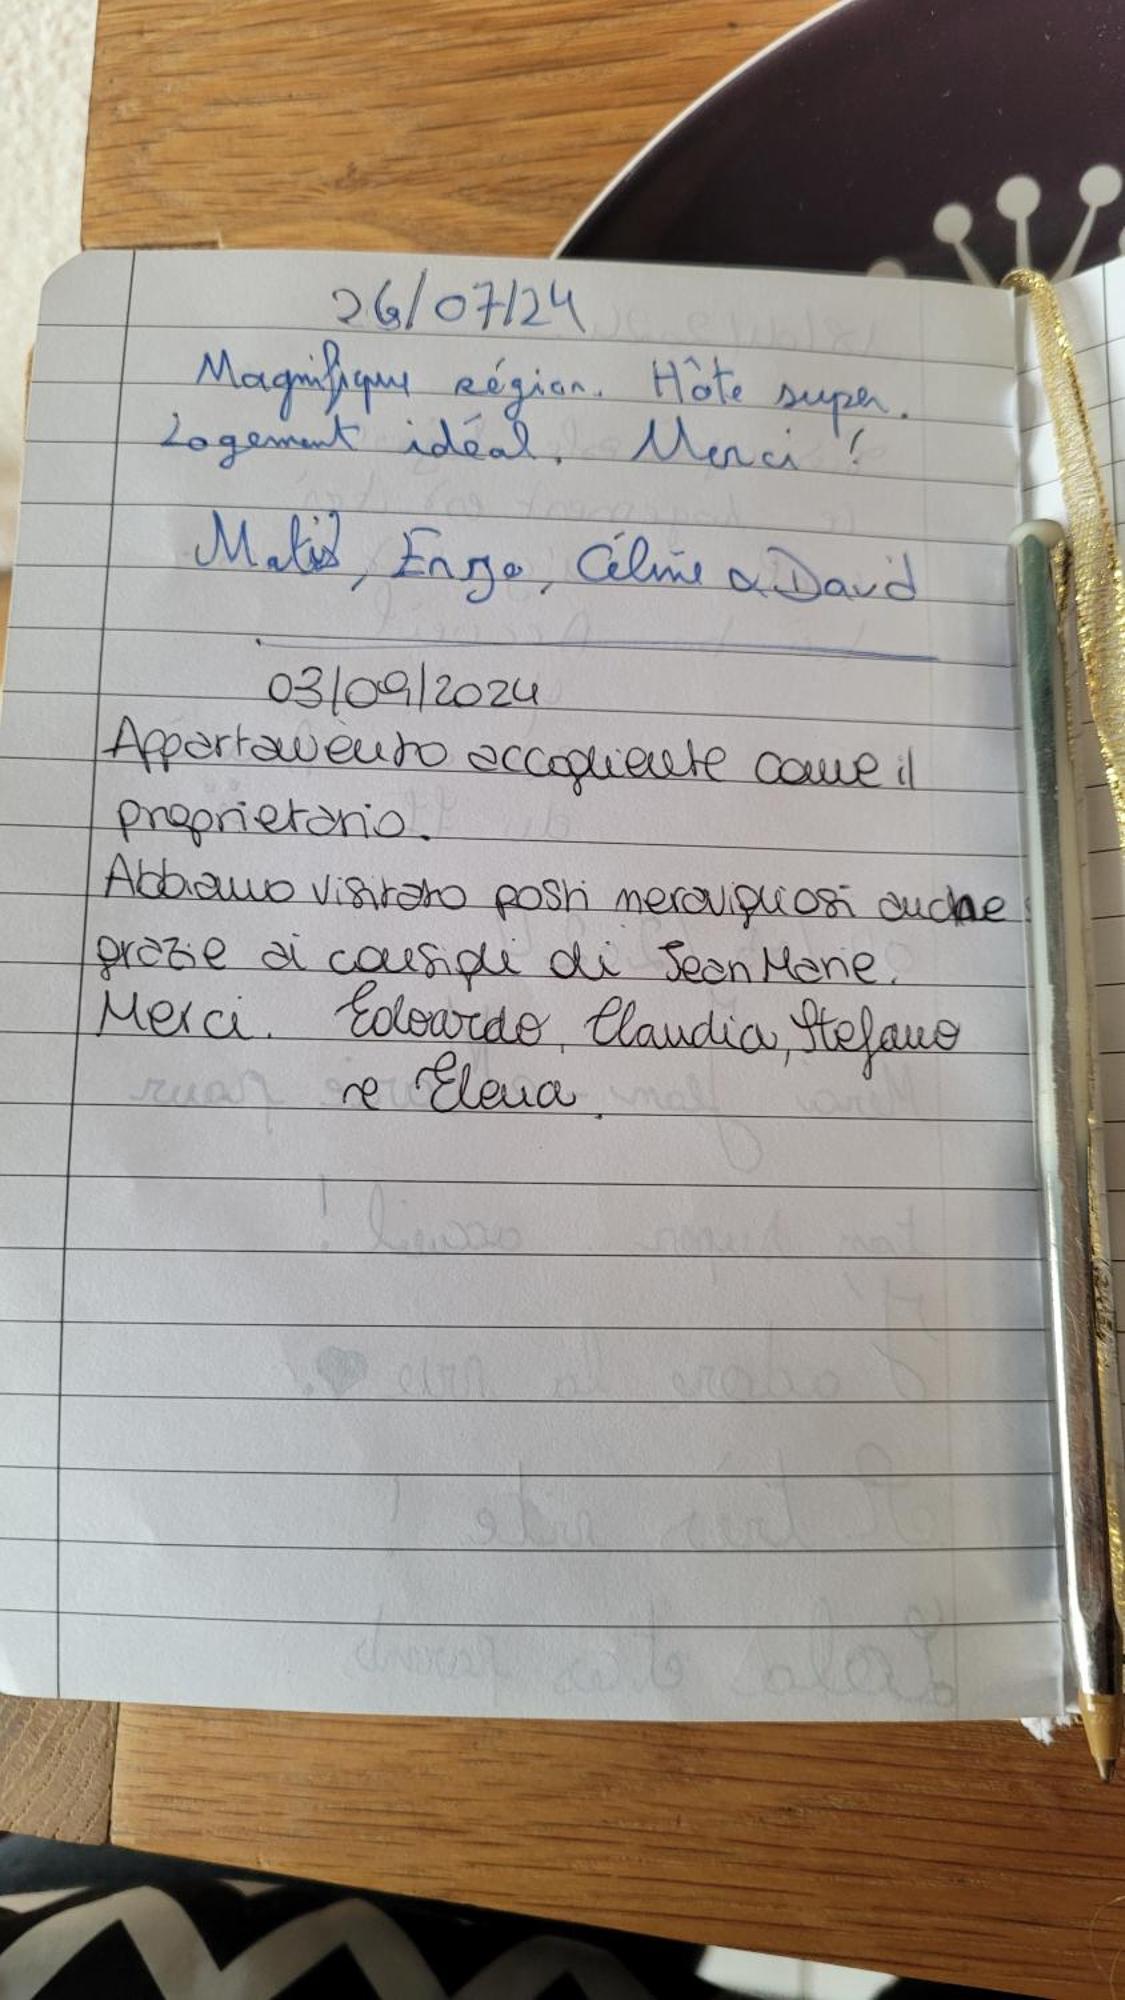 26/07/24
Magnifique région. Hôte super.
Logement idéal. Merci !
Enzo, Céline & David
03/09/2024
Appartamento accogliente come il
proprietario.
Abbiamo visitato posti meravigliosi anche
grazie ai consigli di Jean Marie.
Merci. Edoardo, Claudia, Stefano
e Elena.